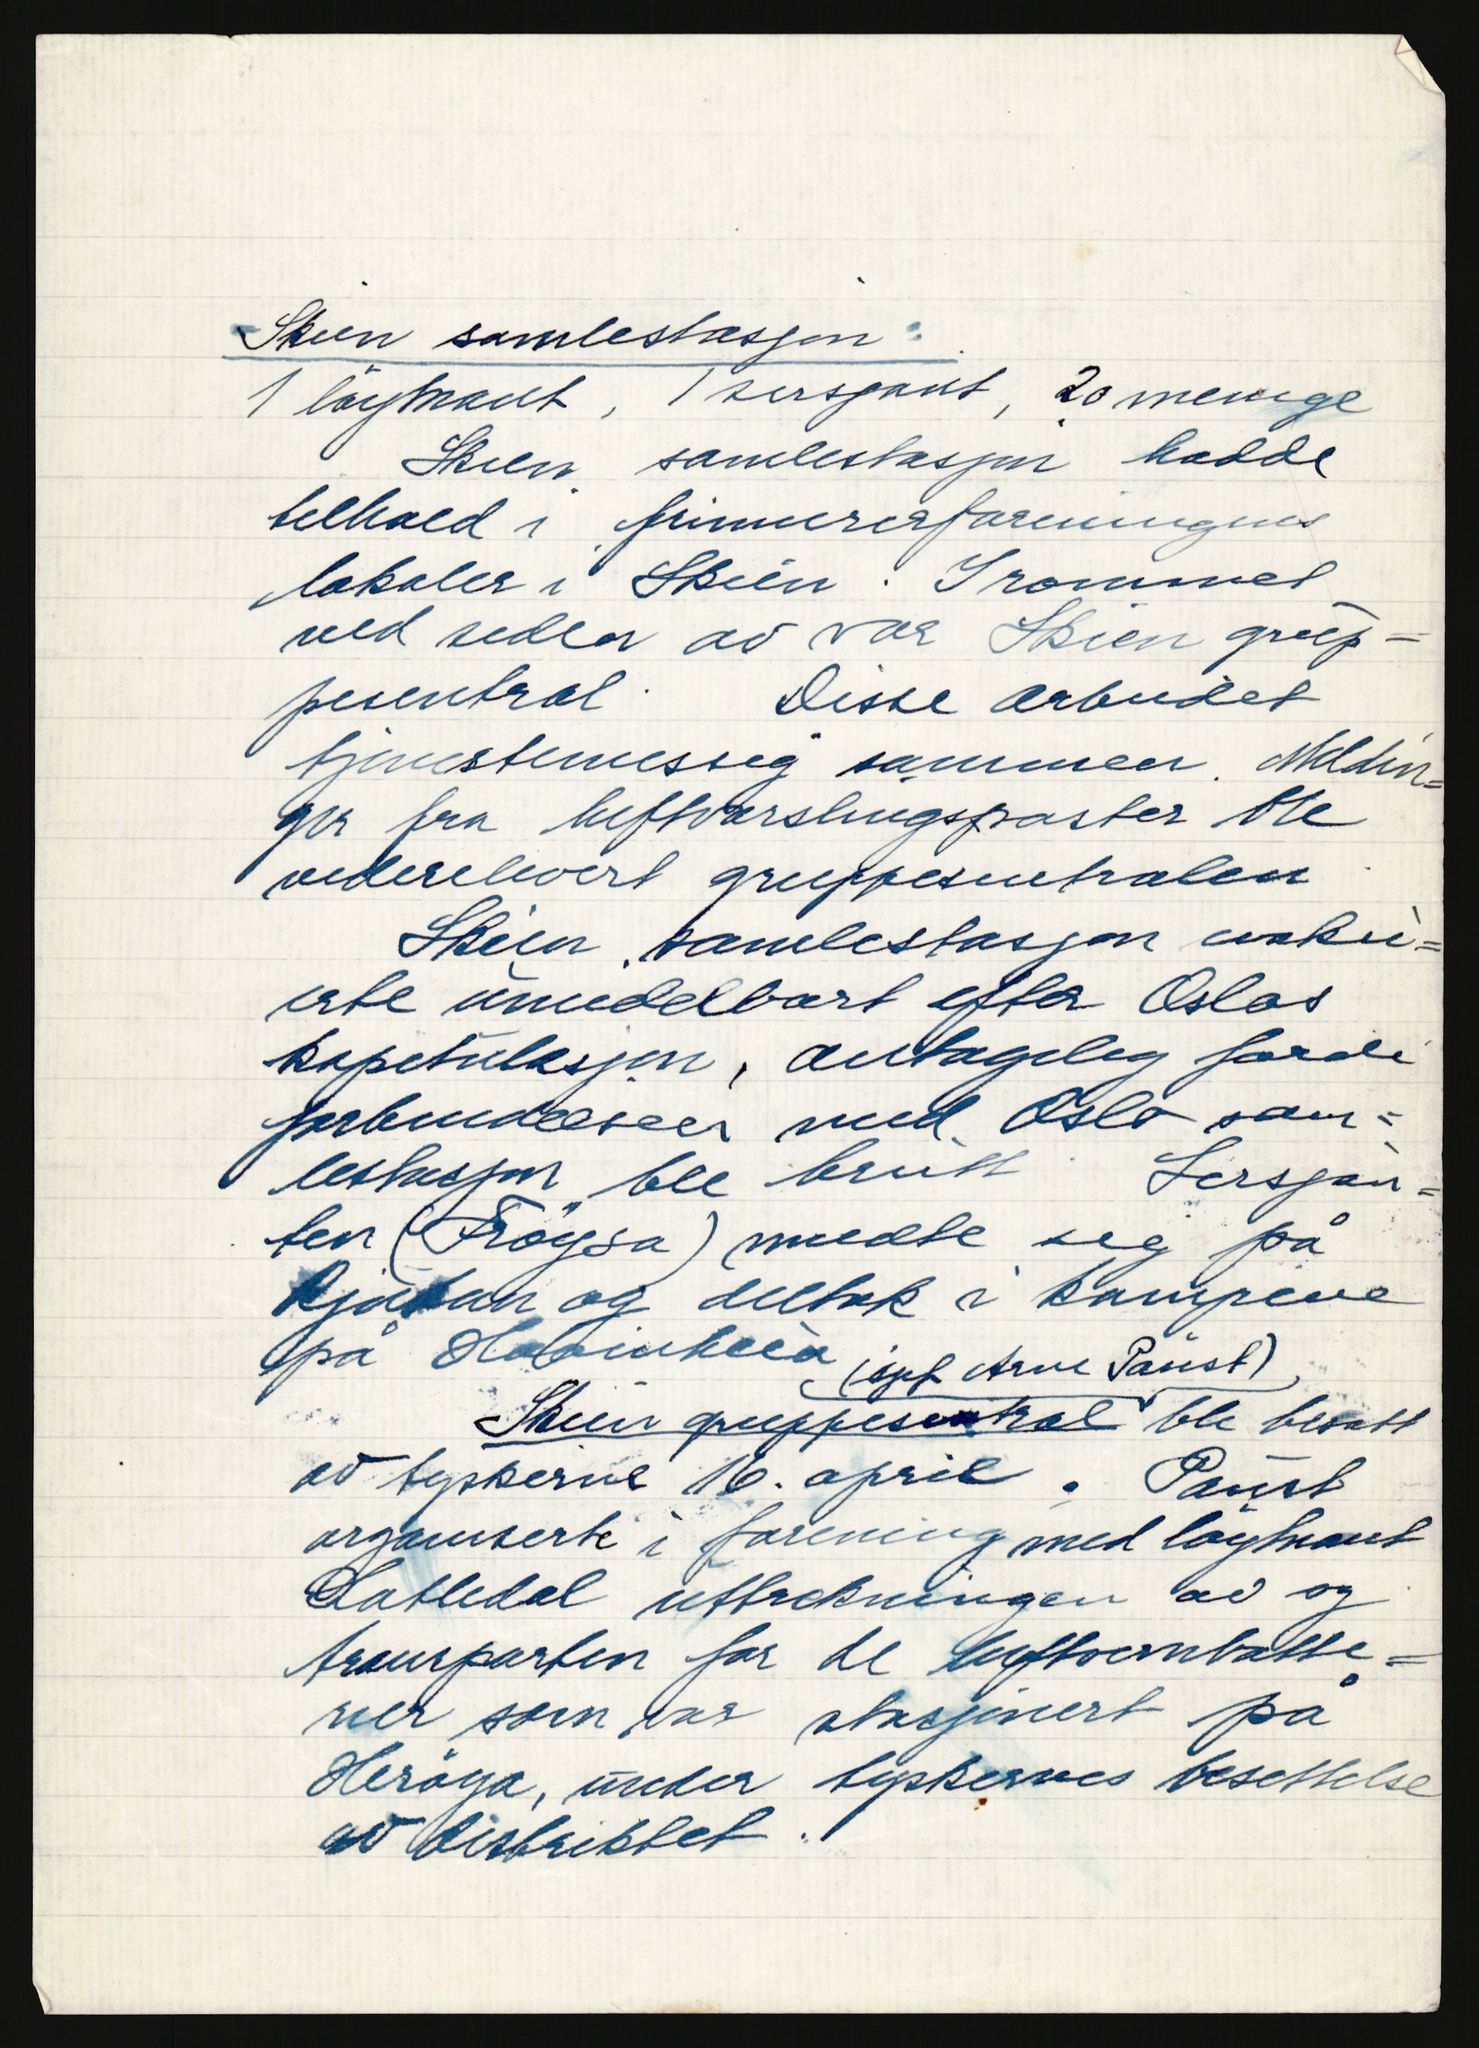 Skien samlestasjon:
1 löytnant, 1 sersjant, 20 menige
Skien samlestasjon hadde
tilhold i frimurerforeningens
lokaler i Skien. I rommet
ved siden av var Skien grup-
pesentral. Disse arbeidet
tjenestemessig sammen. Meldin=
ger fra luftvarslingsposter ble
viderelevert gruppesentralen
Skien samlestasjon evaku=
erte umiddelbart efter Oslos
kapitulasjon, antagelig fordi
forbindelsen med Oslo sam=
lestasjon ble brutt. Sersjan=
ten (Fröysa) meldte seg på
Rjukan og deltok i kampene
på Haainheia
(sjef Arne Paust)
Skien gruppesentral ble besatt
av tyskerne 16. april. Paust
organiserte i forening med löytnant
uttrekningen av og
transporten for de luftvernbatte=
rier som var stasjonert på
Heröya, under tyskernes besettelse
av distriktet.